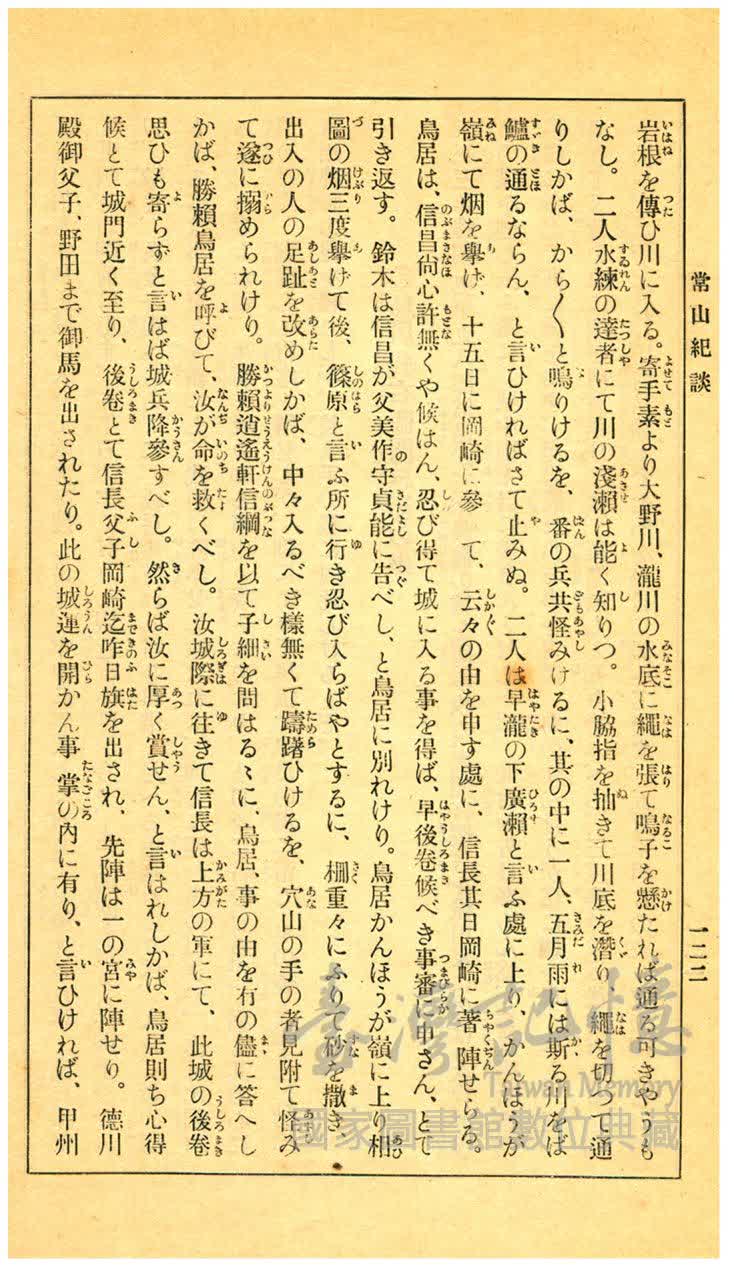 常山紀談
一二二
岩根を傳ひ川に入る。寄手素より大野川、瀧川の水底に繩を張て鳴子を懸たれば通る可きやうも
なし。二人水練の達者にて川の淺瀬は能く知りつ。小脇指を抽きて川底を潛り、繩を切つて通
りしかば、から〱と鳴りけるを、番の兵共怪みけるに、其の中に一人、五月雨には斯る川をば
鱸の通るならん、と言ひければさて止みぬ。二人は早瀧の下廣瀬と言ふ處に上り、かんほうが
嶺にて烟を擧げ、十五日に岡崎に參て、云々の由を申す處に、信長其日岡崎に著陣せらる。
鳥居は、信昌尙心許無くや候はん、忍び得て城に入る事を得ば、早後卷候べき事審に申さん、とて
引き返す。鈴木は信昌が父美作守貞能に告べし、と鳥居に別れけり。鳥居かんほうが嶺に上り相
圖の烟三度擧げて後、篠原と言ふ所に行き忍び入らばやとするに、柵重々にふりて砂を撒き、
出入の人の足趾を改めしかば、中々入るべき樣無くて躊躇ひけるを、穴山の手の者見附て怪み
て遂に搦められけり。勝賴逍遙軒信綱を以て子細を問はるゝに、鳥居、事の由を有の儘に答へし
かば、勝賴鳥居を呼びて、汝が命を救くべし。汝城際に往きて信長は上方の軍にて、此城の後卷
思ひも寄らずと言はば城兵降參すべし。然らば汝に厚く賞せん、と言はれしかば、鳥居則ち心得
候とて城門近く至り、後卷とて信長父子岡崎迄昨日旗を出され、先陣は一の宮に陣せり。德川
殿御父子、野田まで御馬を出されたり。此の城運を開かん事掌の內に有り、と言ひければ、甲州
臺灣記憶
Taiwan Memory
國家圖書館數位典藏